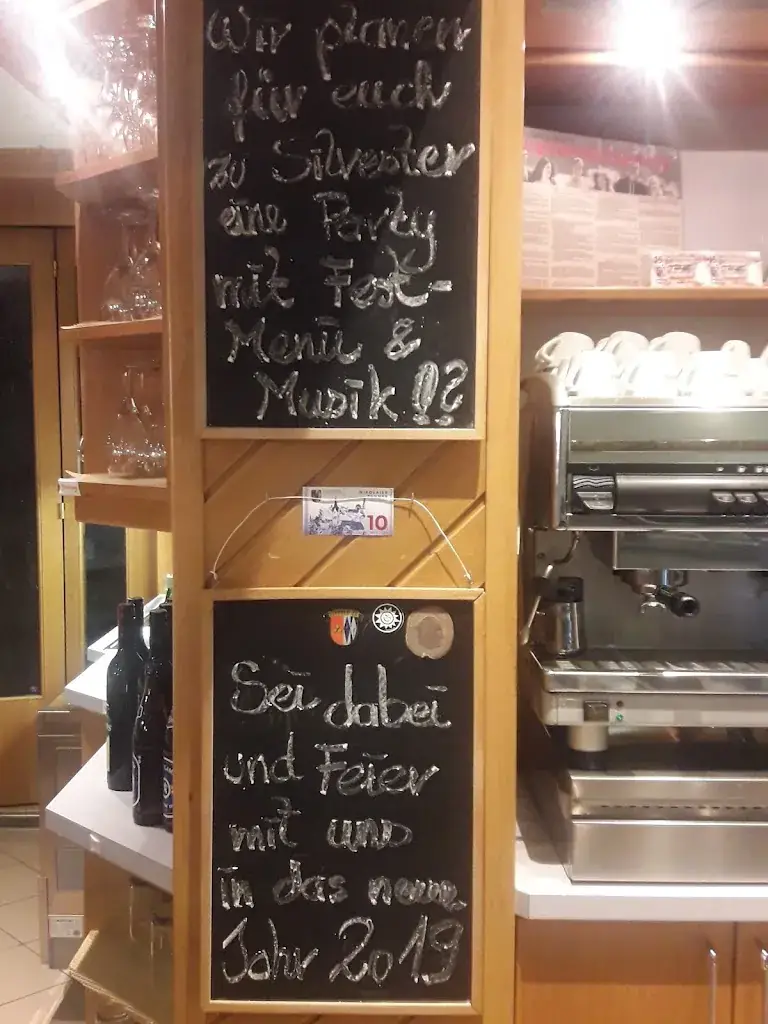 Wir planen
für euch
zu Silvester
eine Party
mit Fest-
Menü &
Musik !!?
10
Sei dabei
und Feier
mit uns
in das neue
Jahr 2019